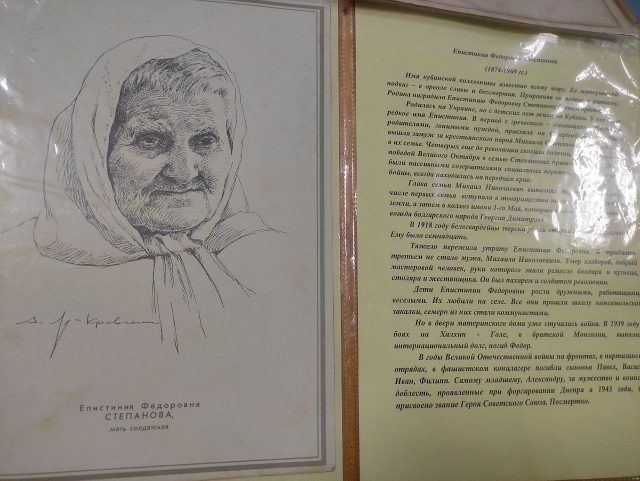 Епистиния Федоровна
СТЕПАНОВА,
мать солдатская
Епистиния Федоровна Степанова
(1874-1969 гг.)
Имя кубанской колхозницы известно всему миру. Её материнский
подвиг – в ореоле славы и бессмертия. Приравняв её
Родина наградила Епистинию Федоровну Степанову
Родилась на Украине, но с детских лет жила на Кубани. У неё
редкое имя Епистиния. В переводе с греческого –
родителями, гонимыми нуждой, приехала на
вышла замуж за крестьянского парня Михаила
в их семье. Четверых еще до революции скосили болезни
победой Великого Октября в семью Степановых
были пассивными созерцателями социальных
бойцы, всегда находились на переднем крае.
Глава семьи Михаил Николаевич
числе первых семья вступила в товарищество
земли, а затем в колхоз имени 1-го Мая,
вождя болгарского народа Георгия Димитрова.
В 1918 году белогвардейцы зверски убили
Ему было семнадцать.
Тяжело пережила утрату Епистиния Федоровна. В тридцать
третьем не стало мужа, Михаила Николаевича. Умер хлебороб, добрый
мастеровой человек, руки которого знали ремесло бондаря и кузнеца,
столяра и жестянщика. Он был пахарем и солдатом революции.
Дети Епистинии Федоровны росли дружными, работящими,
веселыми. Их любили на селе. Все они прошли школу комсомольской
закалки, семеро из них стали коммунистами.
Но в двери материнского дома уже стучалась война. В 1939 году
боях на Халхин - Голе, в братской Монголии, выполняя
интернациональный долг, погиб Федор.
В годы Великой Отечественной войны на фронтах, в партизанских
отрядах, в фашистском концлагере погибли сыновья Павел, Василий,
Иван, Филипп. Самому младшему, Александру, за мужество и воинскую
доблесть, проявленные при форсировании Днепра в 1943 года,
присвоено звание Героя Советского Союза. Посмертно.